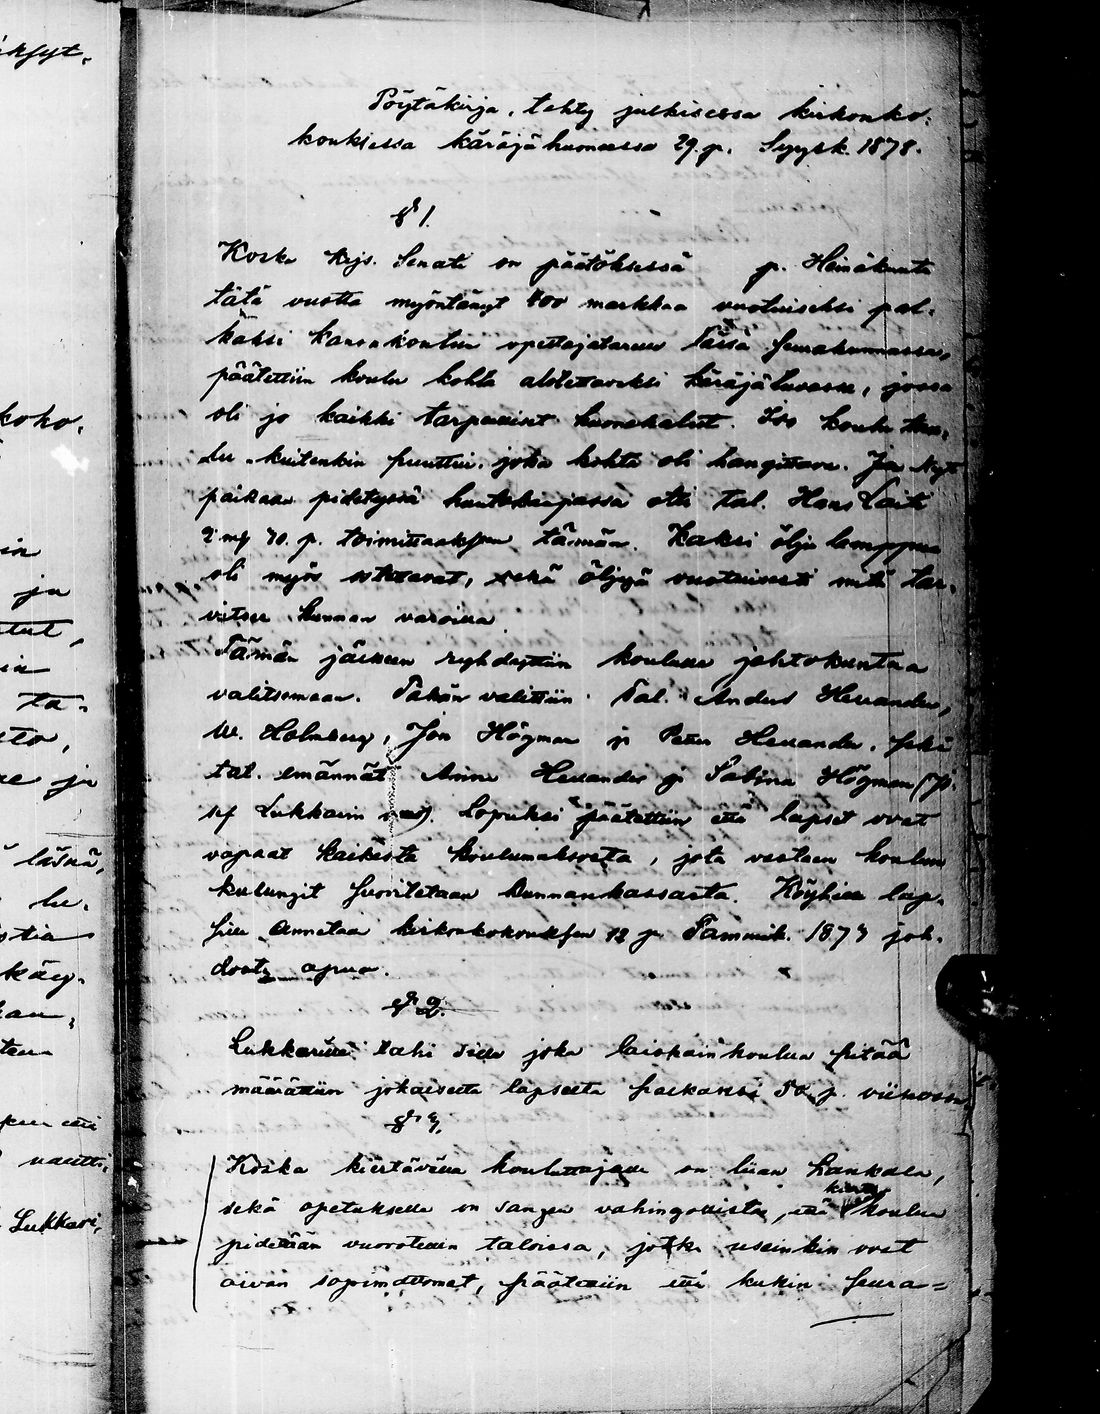 Pöytäkirja, tehty julkisessa kirkonko-
kouksessa käräjähuoneessa 29 p. Syysk. 1878.
§ 1.
Koska Kejs. Senati on päätöksessä p. Heinäkuuta
tätä vuotta myöntänyt 400 markkaa vuotuiseksi pal-
kaksi kansakoulun opettajatarelle tässä seurakunnassa,
päätettiin koulu kohta alotettavaksi käräjätuvassa, jossa
oli jo kaikki tarpeelliset huonekalut. Iso koulu tau-
lu kuitenkin puuttui, joka kohta oli hangittava. Ja
paikalla pidetyssä huutokaupassa otti tal. Hans
9 mk 70 p. toimittaaksen tämän. Kaksi öljy lamppua
oli myös ostettavat, sekä öljyä vuotuisesti mitä tar-
vitsee kunnan varoilla
Tämän jälkeen ryhdyttiin koululle johtokuntaa
valitsemaan. Tähän valittiin Tal. Anders Heran­der,
W. Holmberg, Jon Högman ja Petter Herander, sekä
tal. emännät Anna Herander ja Sabina Högman
Lukkarin Lopuksi päätettiin että lapset ovat
vapaat kaikesta koulumaksosta, jota vastaan koulun
kulungit suoritetaan kunnankassasta. Köyhille lap-
sille annetaan kirkonkokouksen 12 p. Tammik. 1873 joh-
dosta apua.
§ 2.
Lukkarille tahi sille joka laiskain koulua pitää
määrättiin jokaiselta lapselta palkaksi 50 p. viikossa
§ 3.
Koska kiertävällä kouluttajalla on liian hankala,
sekä opetukselle on sangen vahingollista, että kierto koulua
pidetään vuorotellen taloissa, jotka useinkin ovat
aivan sopimattomat, päätettiin että kukin seura=
ja
in
ta-
ja
läsnä,
lu-
Lukkari,